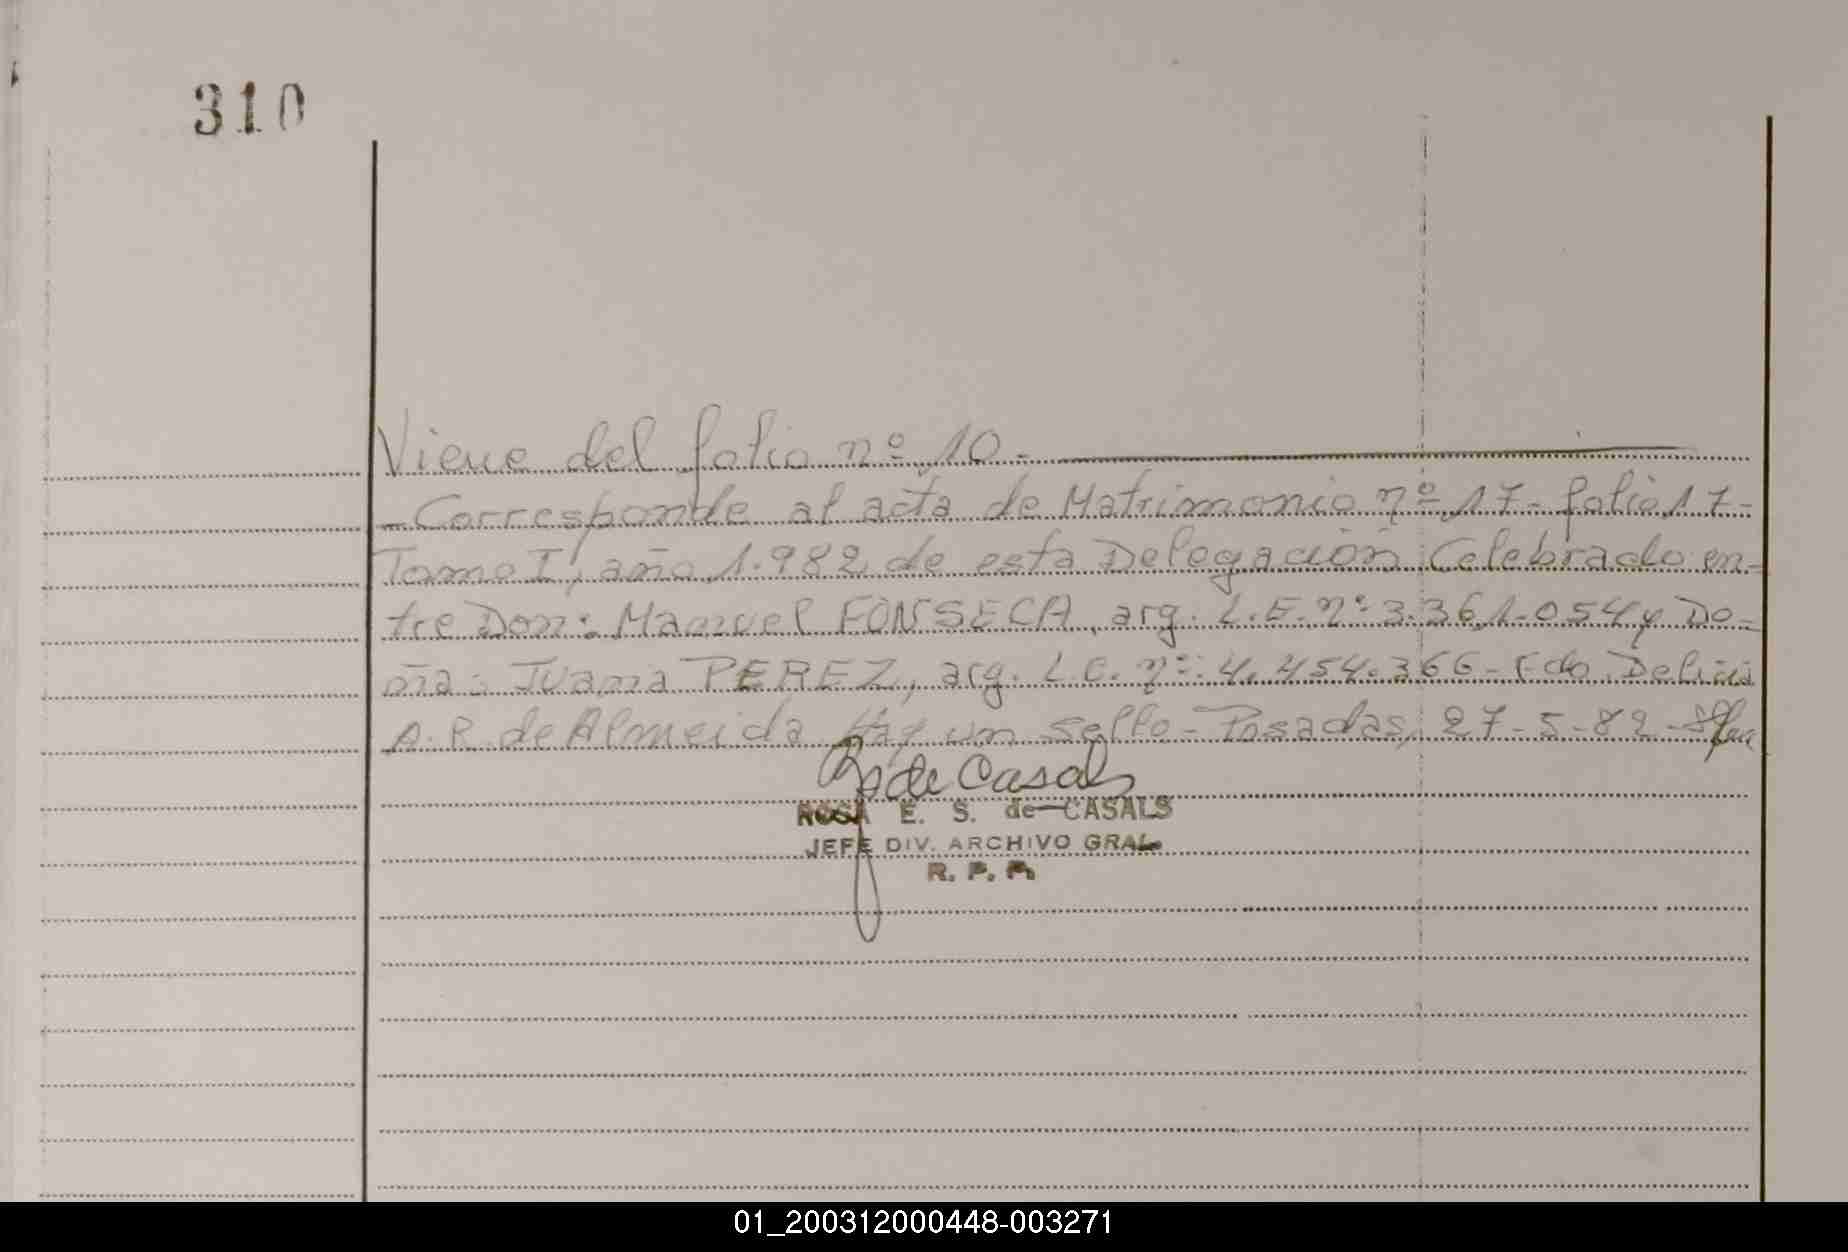 310
Viene del folio nº 10.-
- Corresponde al acta de Matrimonio nº 17- folio 17-
Tomo I, año 1.982 de esta Delegación Celebrado en-
tre Don: Manuel FONSECA, arg. L.E. nº: 3.361.054 y Do-
ña: Juana PEREZ, arg. L.C. nº: 4.454.366- Fdo. Delicia
A. R. de Almeida Hay un sello- Posadas, 27-5-82-
de Casals
ROSA E. S. de CASALS
JEFE DIV. ARCHIVO GRAL.
R. P. P.
01_200312000448-003271